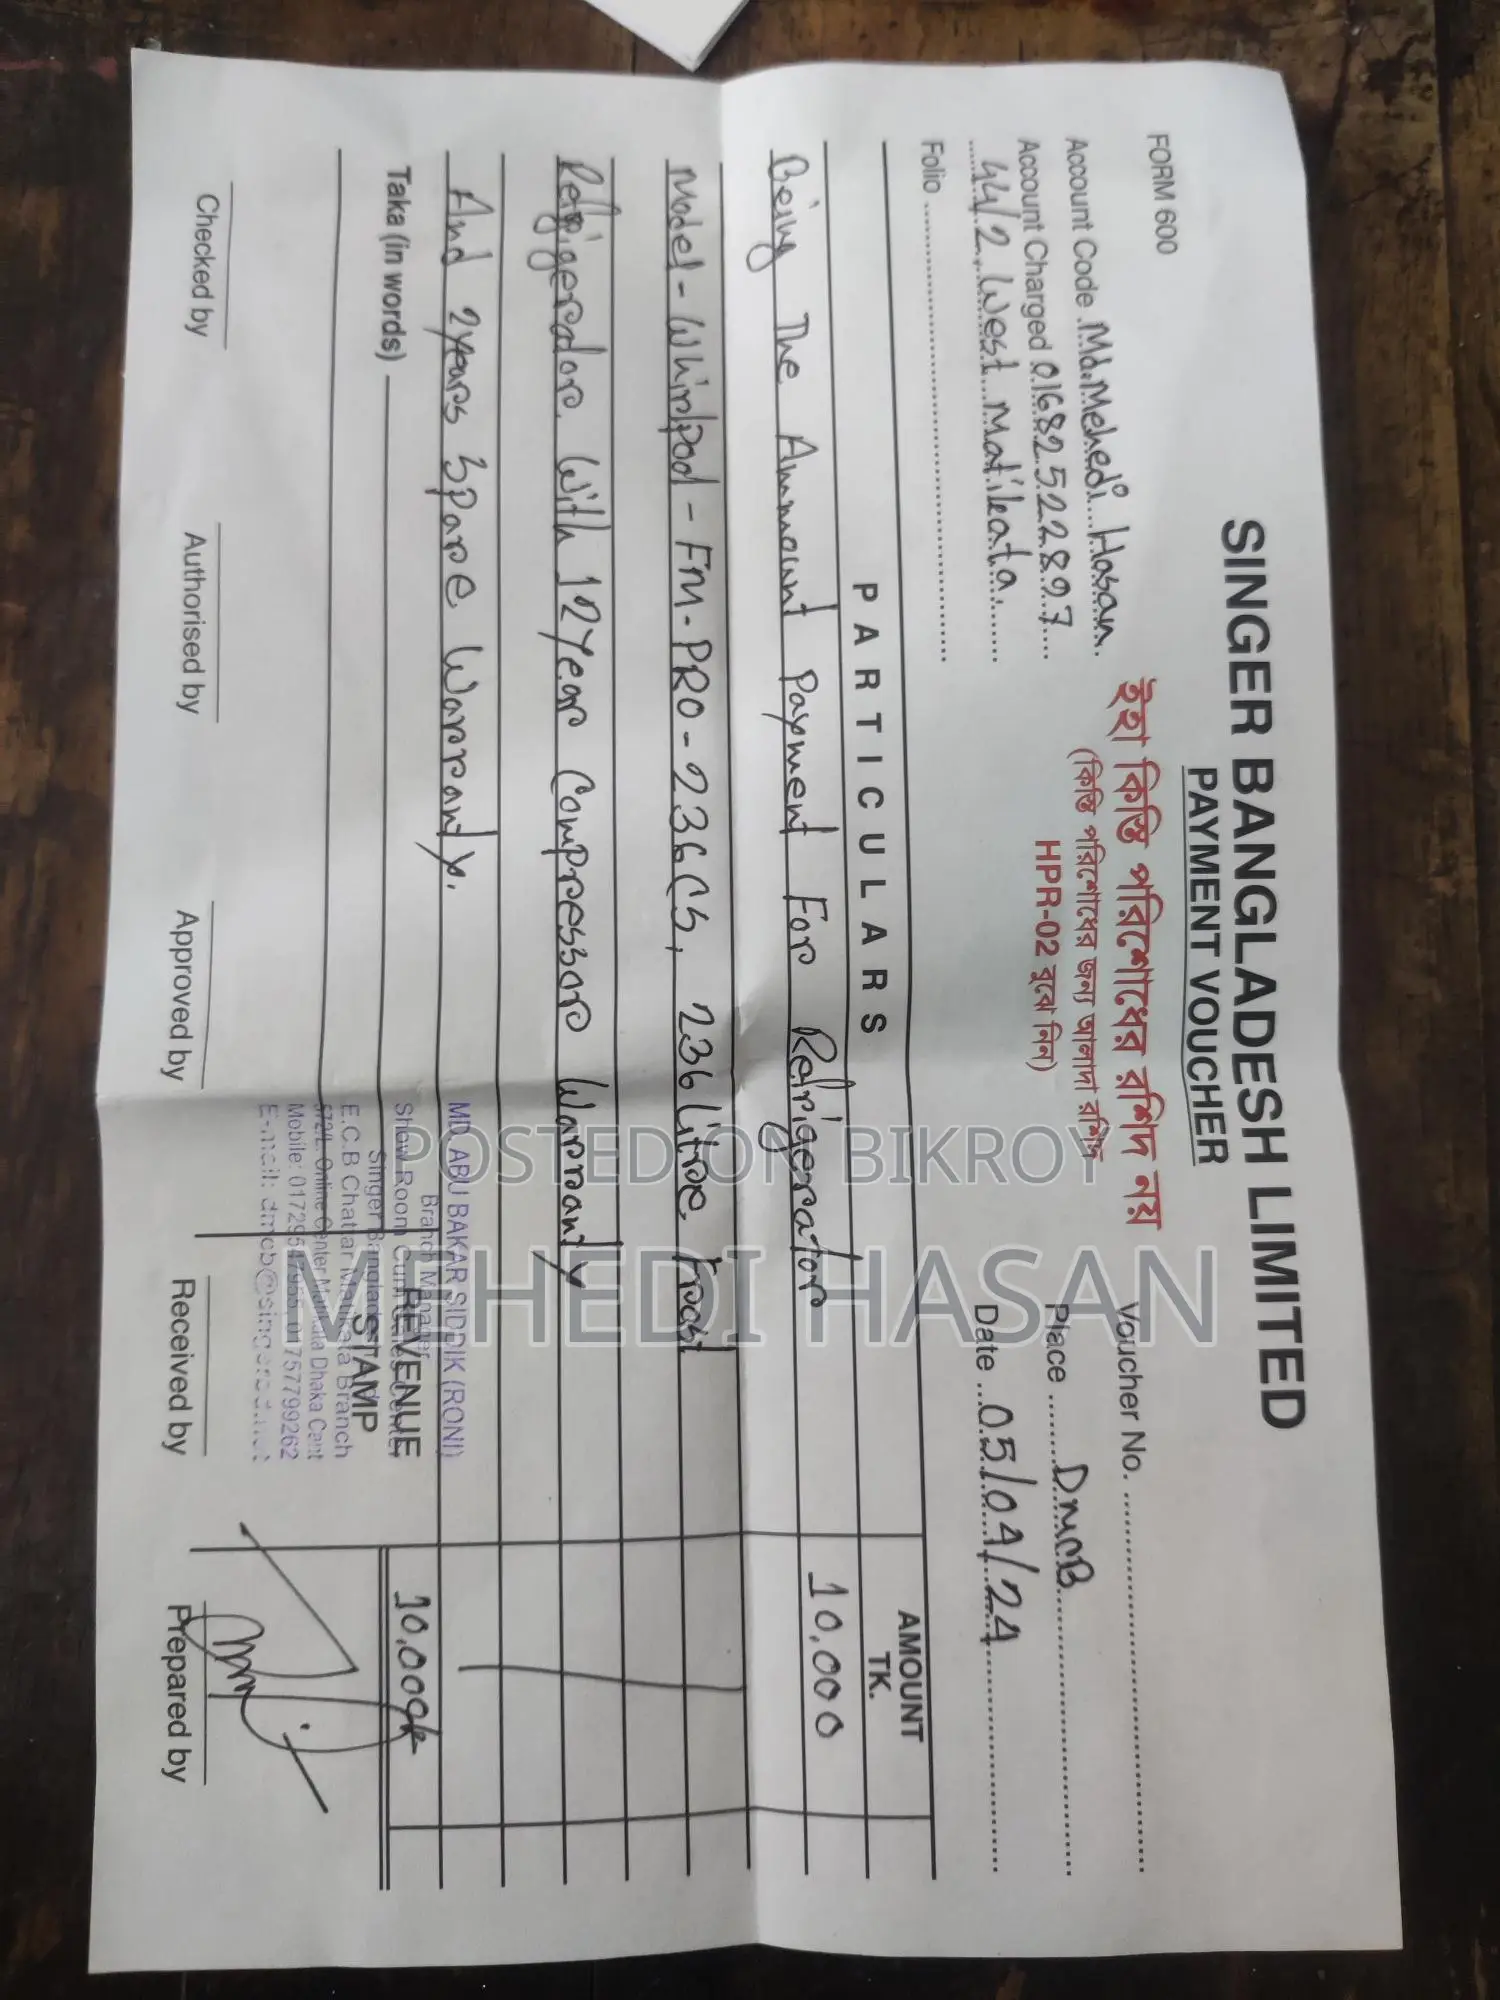 SINGER BANGLADESH LIMITED
PAYMENT VOUCHER
FORM 600
ইহা কিস্তি পরিশোধের রশিদ নয়
(কিস্তি পরিশোধের জন্য আলাদা রশিদ
HPR-02 বুঝে নিন)
Voucher No. ..........
Account Code . Md. Mehedi Hasan.
Place ...... DMCB
Account Charged 01682522897
Date ... 05/04/24
44/2, West Matikata.
Folio ..........
PARTICULARS
AMOUNT
TK.
Being The Ammount Payment For Refrigerator
10,000
Model - Whirlpool - FM-PRO-236CS, 236 Litre, Frost
Refrigerador, With 12 Year Compressor Warranty
And 2 years Spare Warranty.
Taka (in words)
10,000/=
MD. ABU BAKAR SIDDIK (RONI)
Branch Manager
Show Room
Singer Bangladesh
E.C.B Chattar Matikata Branch
572/L Online Center Matikata Dhaka Cant
REVENUE
STAMP
Checked by
Authorised by
Approved by
Received by
Prepared by
POSTED ON BIKROY
MEHEDI HASAN